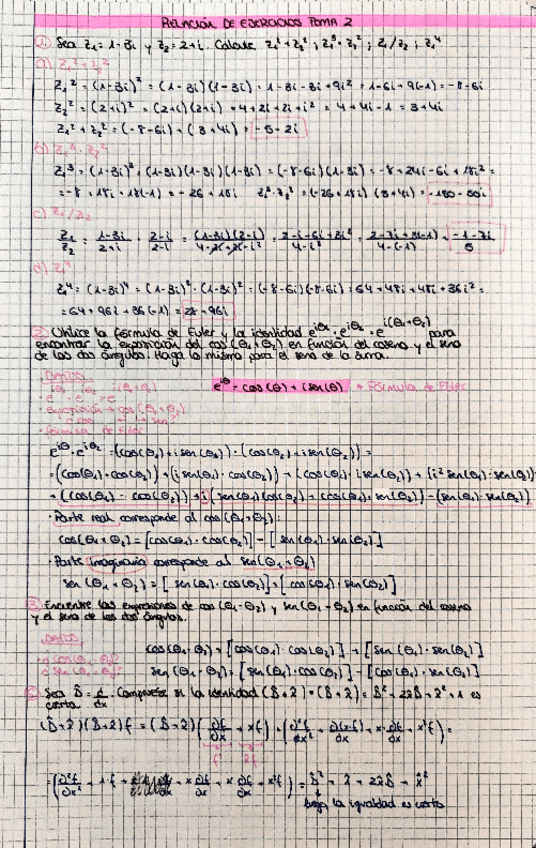 RELACIÓN DE EJERCICIOS TEMA 2
① Sea z₁ = 1-3i y z₂ = 2+i. Calcule z₁² + z₂² ; z₁³ · z₂² ; z₁/z₂ ; z₁⁴
a) z₁² + z₂²
z₁² = (1-3i)² = (1-3i)(1-3i) = 1-3i-3i+9i² = 1-6i+9(-1) = -8-6i
z₂² = (2+i)² = (2+i)(2+i) = 4+2i+2i+i² = 4+4i-1 = 3+4i
z₁² + z₂² = (-8-6i) + (3+4i) = -5-2i
b) z₁³ · z₂²
z₁³ = (1-3i)³ = (1-3i)(1-3i)(1-3i) = (-8-6i)(1-3i) = -8+24i-6i+18i² =
= -8+18i+18(-1) = -26+18i z₁³·z₂² = (-26+18i)(3+4i) = -150-50i
c) z₁/z₂
z₁/z₂ = 1-3i/2+i · 2-i/2-i = (1-3i)(2-i)/4-2i+2i-i² = 2-i-6i+3i²/4-i² = 2-7i+3(-1)/4-(-1) = -1-7i/5
d) z₁⁴
z₁⁴ = (1-3i)⁴ = (1-3i)²·(1-3i)² = (-8-6i)(-8-6i) = 64+48i+48i+36i² =
= 64+96i+36(-1) = 28+96i
② Utilice la fórmula de Euler y la identidad e^iθ₁ · e^iθ₂ = e^i(θ₁+θ₂) para
encontrar la expresión del cos(θ₁+θ₂) en función del coseno y el seno
de los dos ángulos. Haga lo mismo para el seno de la suma.
DATOS
e^iθ₁ · e^iθ₂ = e^i(θ₁+θ₂)
e^iθ = cos(θ) + i sen(θ) → Fórmula de Euler
• expresión → cos(θ₁+θ₂)
• Fórmula de Euler
e^iθ₁ · e^iθ₂ = (cos(θ₁)+i sen(θ₁)) · (cos(θ₂)+i sen(θ₂)) =
= (cos(θ₁)·cos(θ₂)) + (i sen(θ₁)·cos(θ₂)) + (cos(θ₁)·i sen(θ₂)) + (i² sen(θ₁)·sen(θ₂))
= (cos(θ₁) · cos(θ₂)) + i(sen(θ₁)cos(θ₂) + cos(θ₁)·sen(θ₂)) - (sen(θ₁)·sen(θ₂))
• Parte real corresponde al cos(θ₁+θ₂):
cos(θ₁+θ₂) = [cos(θ₁)·cos(θ₂)] - [sen(θ₁)·sen(θ₂)]
• Parte imaginaria corresponde al sen(θ₁+θ₂)
sen(θ₁+θ₂) = [sen(θ₁)·cos(θ₂)] + [cos(θ₁)·sen(θ₂)]
3. Encuentre las expresiones de cos(θ₁-θ₂) y sen(θ₁-θ₂) en función del coseno
y el seno de los dos ángulos.
DATOS
cos(θ₁-θ₂) = [cos(θ₁)·cos(θ₂)] + [sen(θ₁)·sen(θ₂)]
sen(θ₁-θ₂) = [sen(θ₁)·cos(θ₂)] - [cos(θ₁)·sen(θ₂)]
Sea D̂ = d/dx. Compruebe si la identidad (D̂+x̂)·(D̂+x̂) = D̂²+2x̂D̂+x̂²+1 es
cierta.
(D̂+x̂)(D̂+x̂)f = (D̂+x̂)(∂f/∂x + xf) = (∂²f/∂x² + ∂(xf)/∂x + x·∂f/∂x + x²f) =
luego la igualdad es cierta